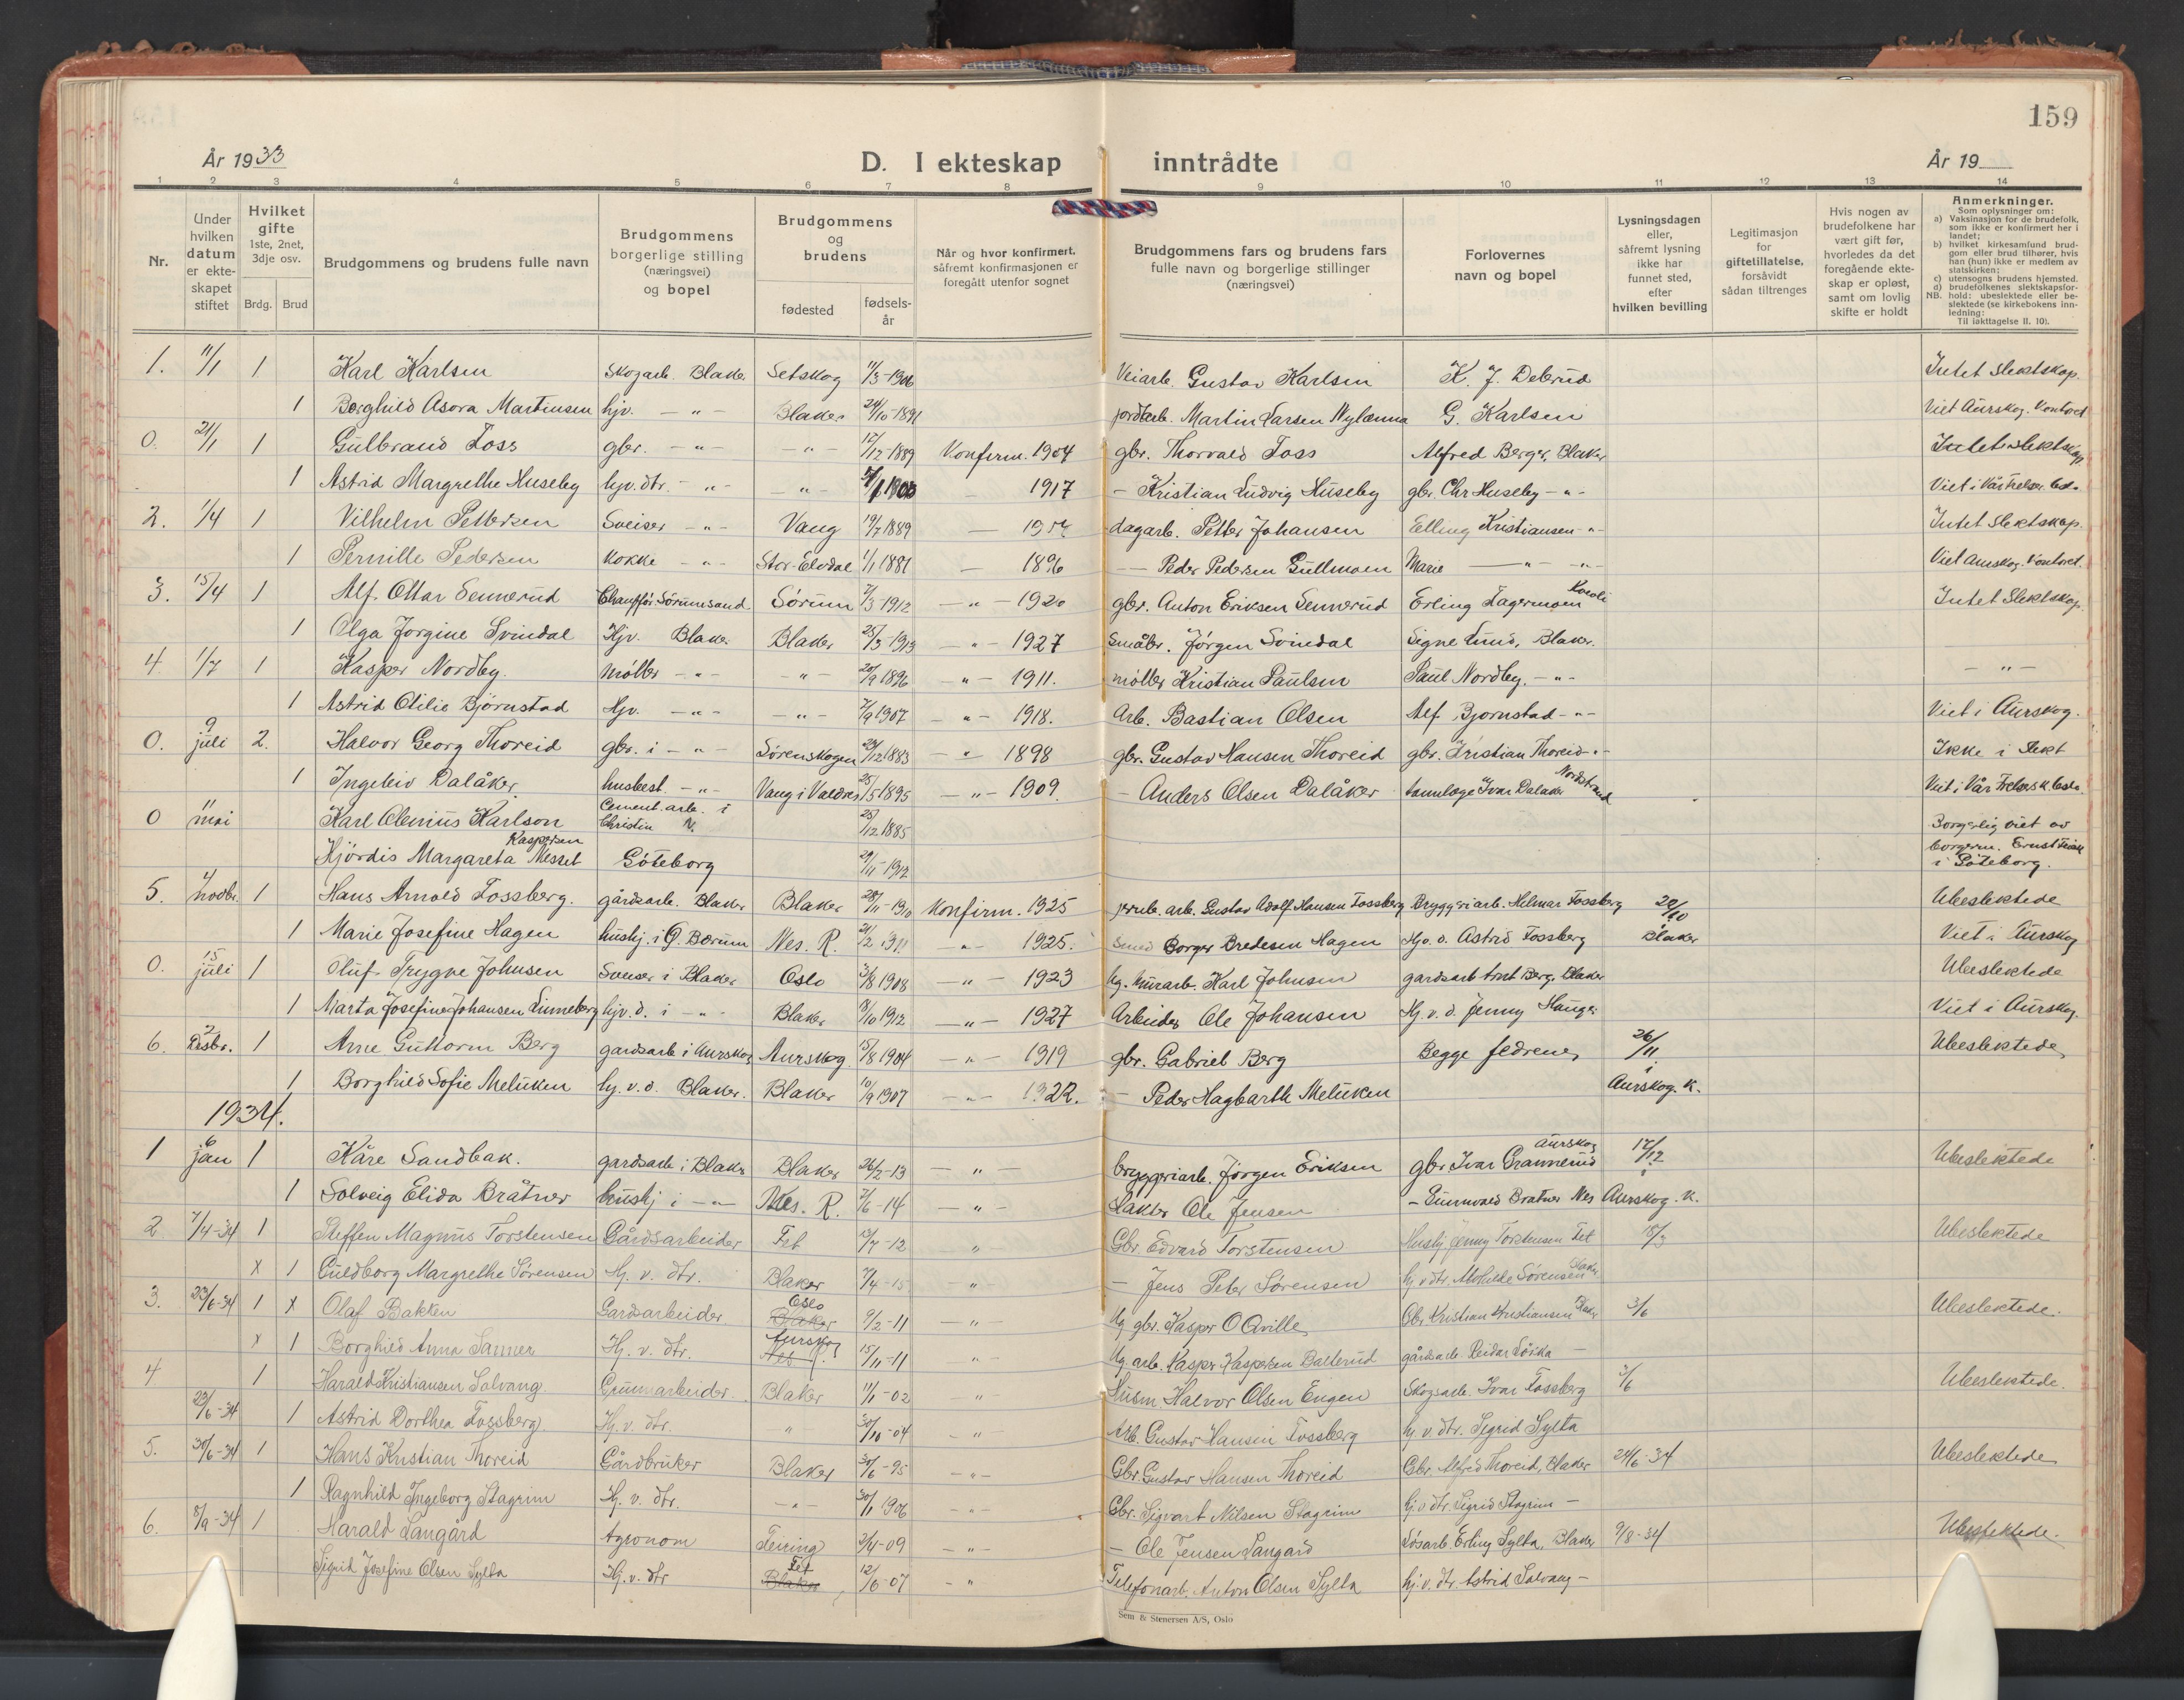 159
År 1933
D. I ekteskap inntrådte
År 19
1 2 3 4 5 6 7 8 9 10 11 12 13 14
Nr.
Under hvilken datum er ekteskapet stiftet
Hvilket gifte 1ste, 2net, 3dje osv.
Brdg. Brud
Brudgommens og brudens fulle navn
Brudgommens borgerlige stilling (næringsvei) og bopel
Brudgommens og brudens
fødested
fødsels-år
Når og hvor konfirmert, såfremt konfirmasjonen er foregått utenfor sognet
Brudgommens fars og brudens fars fulle navn og borgerlige stillinger (næringsvei)
Forlovernes navn og bopel
Lysningsdagen eller, såfremt lysning ikke har funnet sted, efter hvilken bevilling
Legitimasjon for giftetillatelse, forsåvidt sådan tiltrenges
Hvis nogen av brudefolkene har vært gift før, hvorledes da det foregående ekteskap er opløst, samt om lovlig skifte er holdt
Anmerkninger.
Som oplysninger om:
a) Vaksinasjon for de brudefolk, som ikke er konfirmert her i landet;
b) hvilket kirkesamfund brudgom eller brud tilhører, hvis han (hun) ikke er medlem av statskirken;
c) utensogns brudens hjemsted.
d) brudefolkenes slektskapsforhold: ubeslektede eller beslektede (se kirkebokens innledning:
NB.
Til iakttagelse II. 10).
1. 11/1 1 Karl Karlsen Skogarb. Blaker Setskog 11/3-1906 Veiarb. Gustav Karlsen K. J. Deberud Intet slektskap.
1 Borghild Asora Martinsen hjv. -"- Blaker 24/10-1891 jordarb. Martin Larsen Nylænna G. Karlsen Viet Aurskog. Kontoret
0. 21/1 1 Gulbrand Foss gbr. -"- -"- 17/12-1889 Konfirm. 1904 gbr. Thorvald Foss Alfred Berger, Blaker Intet slektskap
1 Astrid Margrethe Huseby hjv. dtr. -"- -"- 1917 - Kristian Ludvig Huseby gbr. Chr Huseby -"- Viet i Vår Frelser. Oslo
2. 1/4 1 Vilhelm Pettersen Sveiser -"- Vang 19/7 1889 — dagarb. Petter Johansen Elling Kristiansen -"- Intet slektskap.
1 Pernille Pedersen Kokke -"- Stor-Elvdal 1/1 1881 — 1896 -- Peder Pedersen Gullmoen Marie —"— -"- Viet Aurskog. Kontoret.
3. 15/4 1 Alf. Ottar Sennerud Chauffør Sørumsand Sørum 7/3-1912 -"- 1920 gbr. Anton Eriksen Sennerud Erling Lageringen Intet slektskap.
1 Olga Jorgine Svindal Hjv. Blaker Blaker 25/3-1913 -"- 1927 Småbr. Jørgen Svindal Signe Lund, Blaker.
4. 1/7 1 Kasper Nordby. møller -"- -"- 20/9 1896 -"- 1911. møller Kristian Paulsen Paul Nordby. -"- -"-
1 Astrid Otilie Bjørnstad Hjv. -"- -"- 7/9 1907 -"- 1918. Arb. Bastian Olsen Alf Bjornstad -"- Viet i Aurskog.
0. 9 juli 2. Halvor Georg Thoreid gbr. i -"- Sørenskogen 29/12 1883 -"- 1898 gbr. Gustav Hansen Thoreid gbr. Kristian Thoreid -"- Ikke i slekt
1 Ingeleiv Dalåker. husbest. -"- Vang i Valdres 25/5 1895 -"- 1909. - Anders Olsen Dalåker tannlæge Ivar Dalaker Nordstrand Viet i Vår Frelsers k. Oslo.
0 11 mai Karl Olenius Karlson Cement. arb. i Christin N. 25/12 1885 Borgerlig viet av
Hjördis Margareta Kaspersen Messel Göteborg 29/11-1912 borgerm. Ernst i Göteborg.
5. 4 novbr. 1 Hans Arnold Fossberg. gårdsarb. Blaker Blaker 28/11-1910 Konfirm. 1925 jernb. arb. Gustav Adolf Hansen Fossberg Bryggeriarb. Helmar Fossberg 29/10 Ubeslektede
1 Marie Josefine Hagen hushj. i Ø. Bærum Nes. R. 21/2 1911 -"- 1925. Smed Borger Bredesen Hagen Hjv. d. Astrid Fossberg Blaker Viet i Aurskog
0. 15 juli 1 Oluf Trygve Johnsen Sveiser i Blaker Oslo 3/8 1908 -"- 1923 Ug. murarb. Karl Johnsen gardsarb Arnt Berg, Blaker Ubeslektede
1 Marta Josefine Johansen Linneberg hjv. d. i -"- Blaker 8/10 1912 -"- 1927 Arbeider Ole Johansen Hj. v. d. Jenny Hauger Viet i Aurskog.
6. 2 Desbr. 1 Arne Guttorm Berg gardsarb i Aurskog Aurskog 15/8 1904 -"- 1919 gbr. Gabriel Berg Begge fedrene, 26/11 i Ubeslektede
1 Borghild Sofie Meluken hj. v. d. Blaker. Blaker 10/9 1907 -"- 1922. - Peder Hagbarth Meluken Aurskog. K.
1934.
1 6 jan 1 Kåre Sandbak. gardsarb i Blaker Blaker 26/2-13 -"- bryggeriarb. Jörgen Eriksen gbr Ivar Grannerud Aurskog 17/12 i Ubeslektede
1 Solveig Elida Bråtner hushj i -"- Nes. R. 7/6-14 -"- Slakter Ole Jensen - Gunnvald Bratner Nes Aurskog. K.
2 7/4-34 1 Steffen Magnus Torstensen Gårdsarbeider Fet 13/7-12 " Gbr Edvard Torstensen Hushj Jenny Torstensen Fet 18/3 Ubeslektede
x 1 Guldborg Margrethe Sörensen Hj. v. dtr. Blaker 7/4-15 " - Jens Peter Sörensen hj v dtr. Mathilde Sörensen Ubeslektede
3. 23/6-34 1 x Olaf Bakken Gardsarbeider Oslo Blaker 9/2-11 -"- Ug gbr. Kasper O Qville Gbr. Kristian Kristiansen Blaker 3/6 Ubeslektede.
x 1 Borghild Anna Sanner Hj. v. dtr. Aurskog Nes R. 15/11-11 -"- Ug. arb. Kasper Kaspersen Ballerud gårdsarb. Reidar Löska -
4 1 Harald Kristiansen Solvang Grunnarbeider Blaker 11/1-02 " Husm Halvor Olsen Engen Skogsarb. Ivar Fossberg 3/6 Ubeslektede.
23/6-34 1 Astrid Dorthea Fossberg Hj. v. dtr. " 30/10-04 -"- Arb. Gustav Hansen Fossberg hj v. dtr. Sigrid Sylta
5. 30/6-34 1 Hans Kristian Thoreid Gårdbruker Blaker 30/6-95 -"- Gbr. Gustav Hansen Thoreid Gbr. Alfred Thoreid, Blaker 24/6-34 Ubeslektede
1 Ragnhild Ingeborg Stagrim Hj. v. dtr. -"- 30/1 1906 -"- Gbr. Sigvart Nilsen Stagrim hj. v dtr. Sigrid Stagrim -
6. 8/9-34 1 Harald Langård Agronom Feiring 2/4-09 -"- - Ole Jensen Langård Løsarb. Erling Sylta, Blaker 9/8-34 Ubeslektede.
Sigrid Josefine Olsen Sylta Hj. v. dtr Fet Blaker 12/6-07 -" Telefonarb. Anton Olsen Sylta hj. v. dtr. Astrid Solvang -
Sem & Stenersen A/S, Oslo